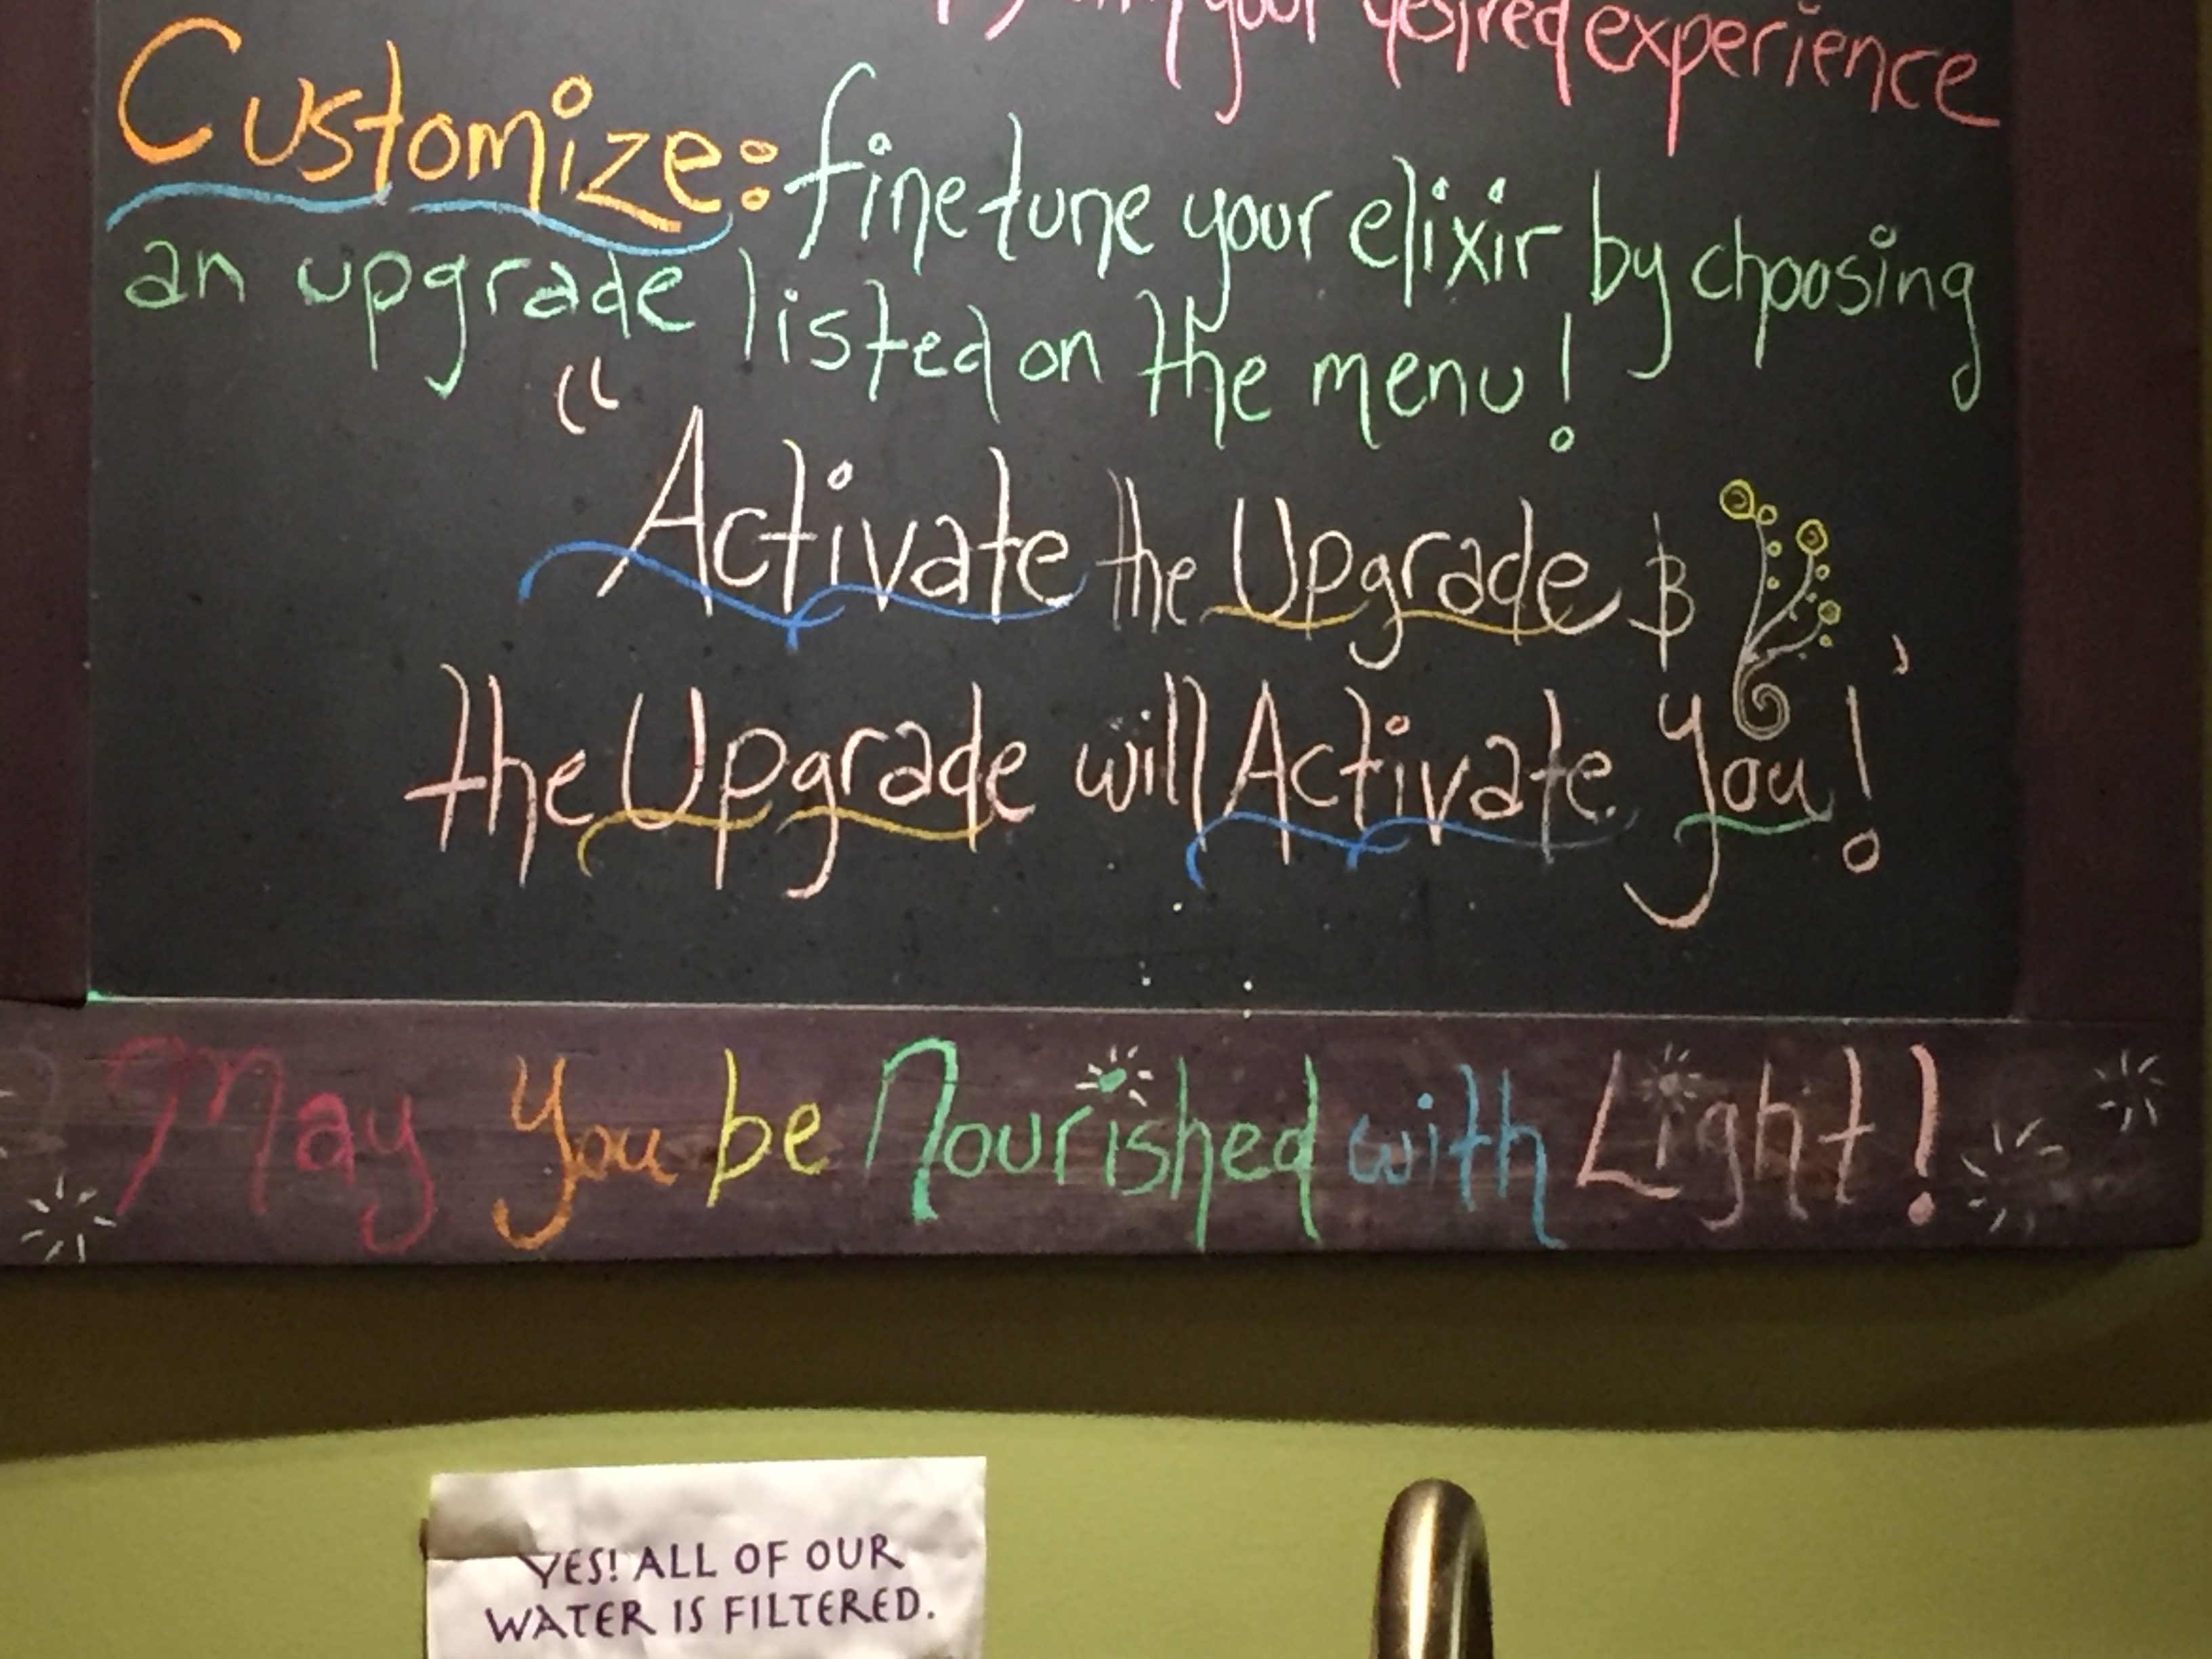 your desired experience
Customize: fine tune your elixir by choosing
an upgrade listed on the menu!
"Activate the Upgrade &
the Upgrade will Activate you!"
May you be Nourished with Light!
YES! ALL OF OUR
WATER IS FILTERED.